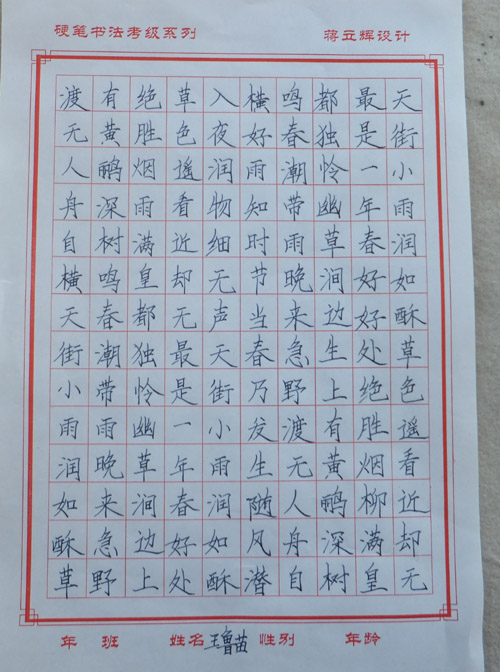 硬笔书法考级系列 蒋立辉设计
天街小雨润如酥草色遥看近却无
最是一年春好好处绝胜烟柳满皇
都独怜幽草涧边生上有黄鹂深树
鸣春潮带雨晚来急野渡无人舟自
横好雨知时节当春乃发生随风潜
入夜润物细无声天街小雨润如酥
草色遥看近却无最是一年春好处
绝胜烟雨满皇都独怜幽草涧边上
有黄鹂深树鸣春潮带雨晚来急野
渡无人舟自横天街小雨润如酥草
年 班 姓名 王鲁苗 性别 年龄